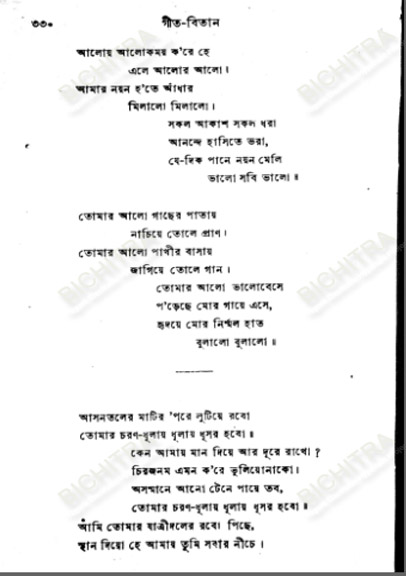 ৩৩০ গীত-বিতান
আলোয় আলোকময় ক'রে হে
এলে আলোর আলো।
আমার নয়ন হ'তে আঁধার
মিলালো মিলালো।
সকল আকাশ সকল ধরা
আনন্দে হাসিতে ভরা,
যে-দিক পানে নয়ন মেলি
ভালো সবি ভালো॥
তোমার আলো গাছের পাতায়
নাচিয়ে তোলে প্রাণ।
তোমার আলো পাখীর বাসায়
জাগিয়ে তোলে গান।
তোমার আলো ভালোবেসে
প'ড়েছে মোর গায়ে এসে,
হৃদয়ে মোর নির্ম্মল হাত
বুলালো বুলালো॥
আসনতলের মাটির 'পরে লুটিয়ে রবো
তোমার চরণ-ধূলায় ধূলায় ধূসর হবো॥
কেন আমায় মান দিয়ে আর দূরে রাখো?
চিরজনম এমন ক'রে ভুলিয়োনাকো।
অসম্মানে আনো টেনে পায়ে তব,
তোমার চরণ-ধূলায় ধূলায় ধূসর হবো॥
আমি তোমার যাত্রীদলের রবো পিছে,
স্থান দিয়ো হে আমায় তুমি সবার নীচে।
BICHITRA
BICHITRA
BICHITRA
BICHITRA
BICHITRA
BICHITRA